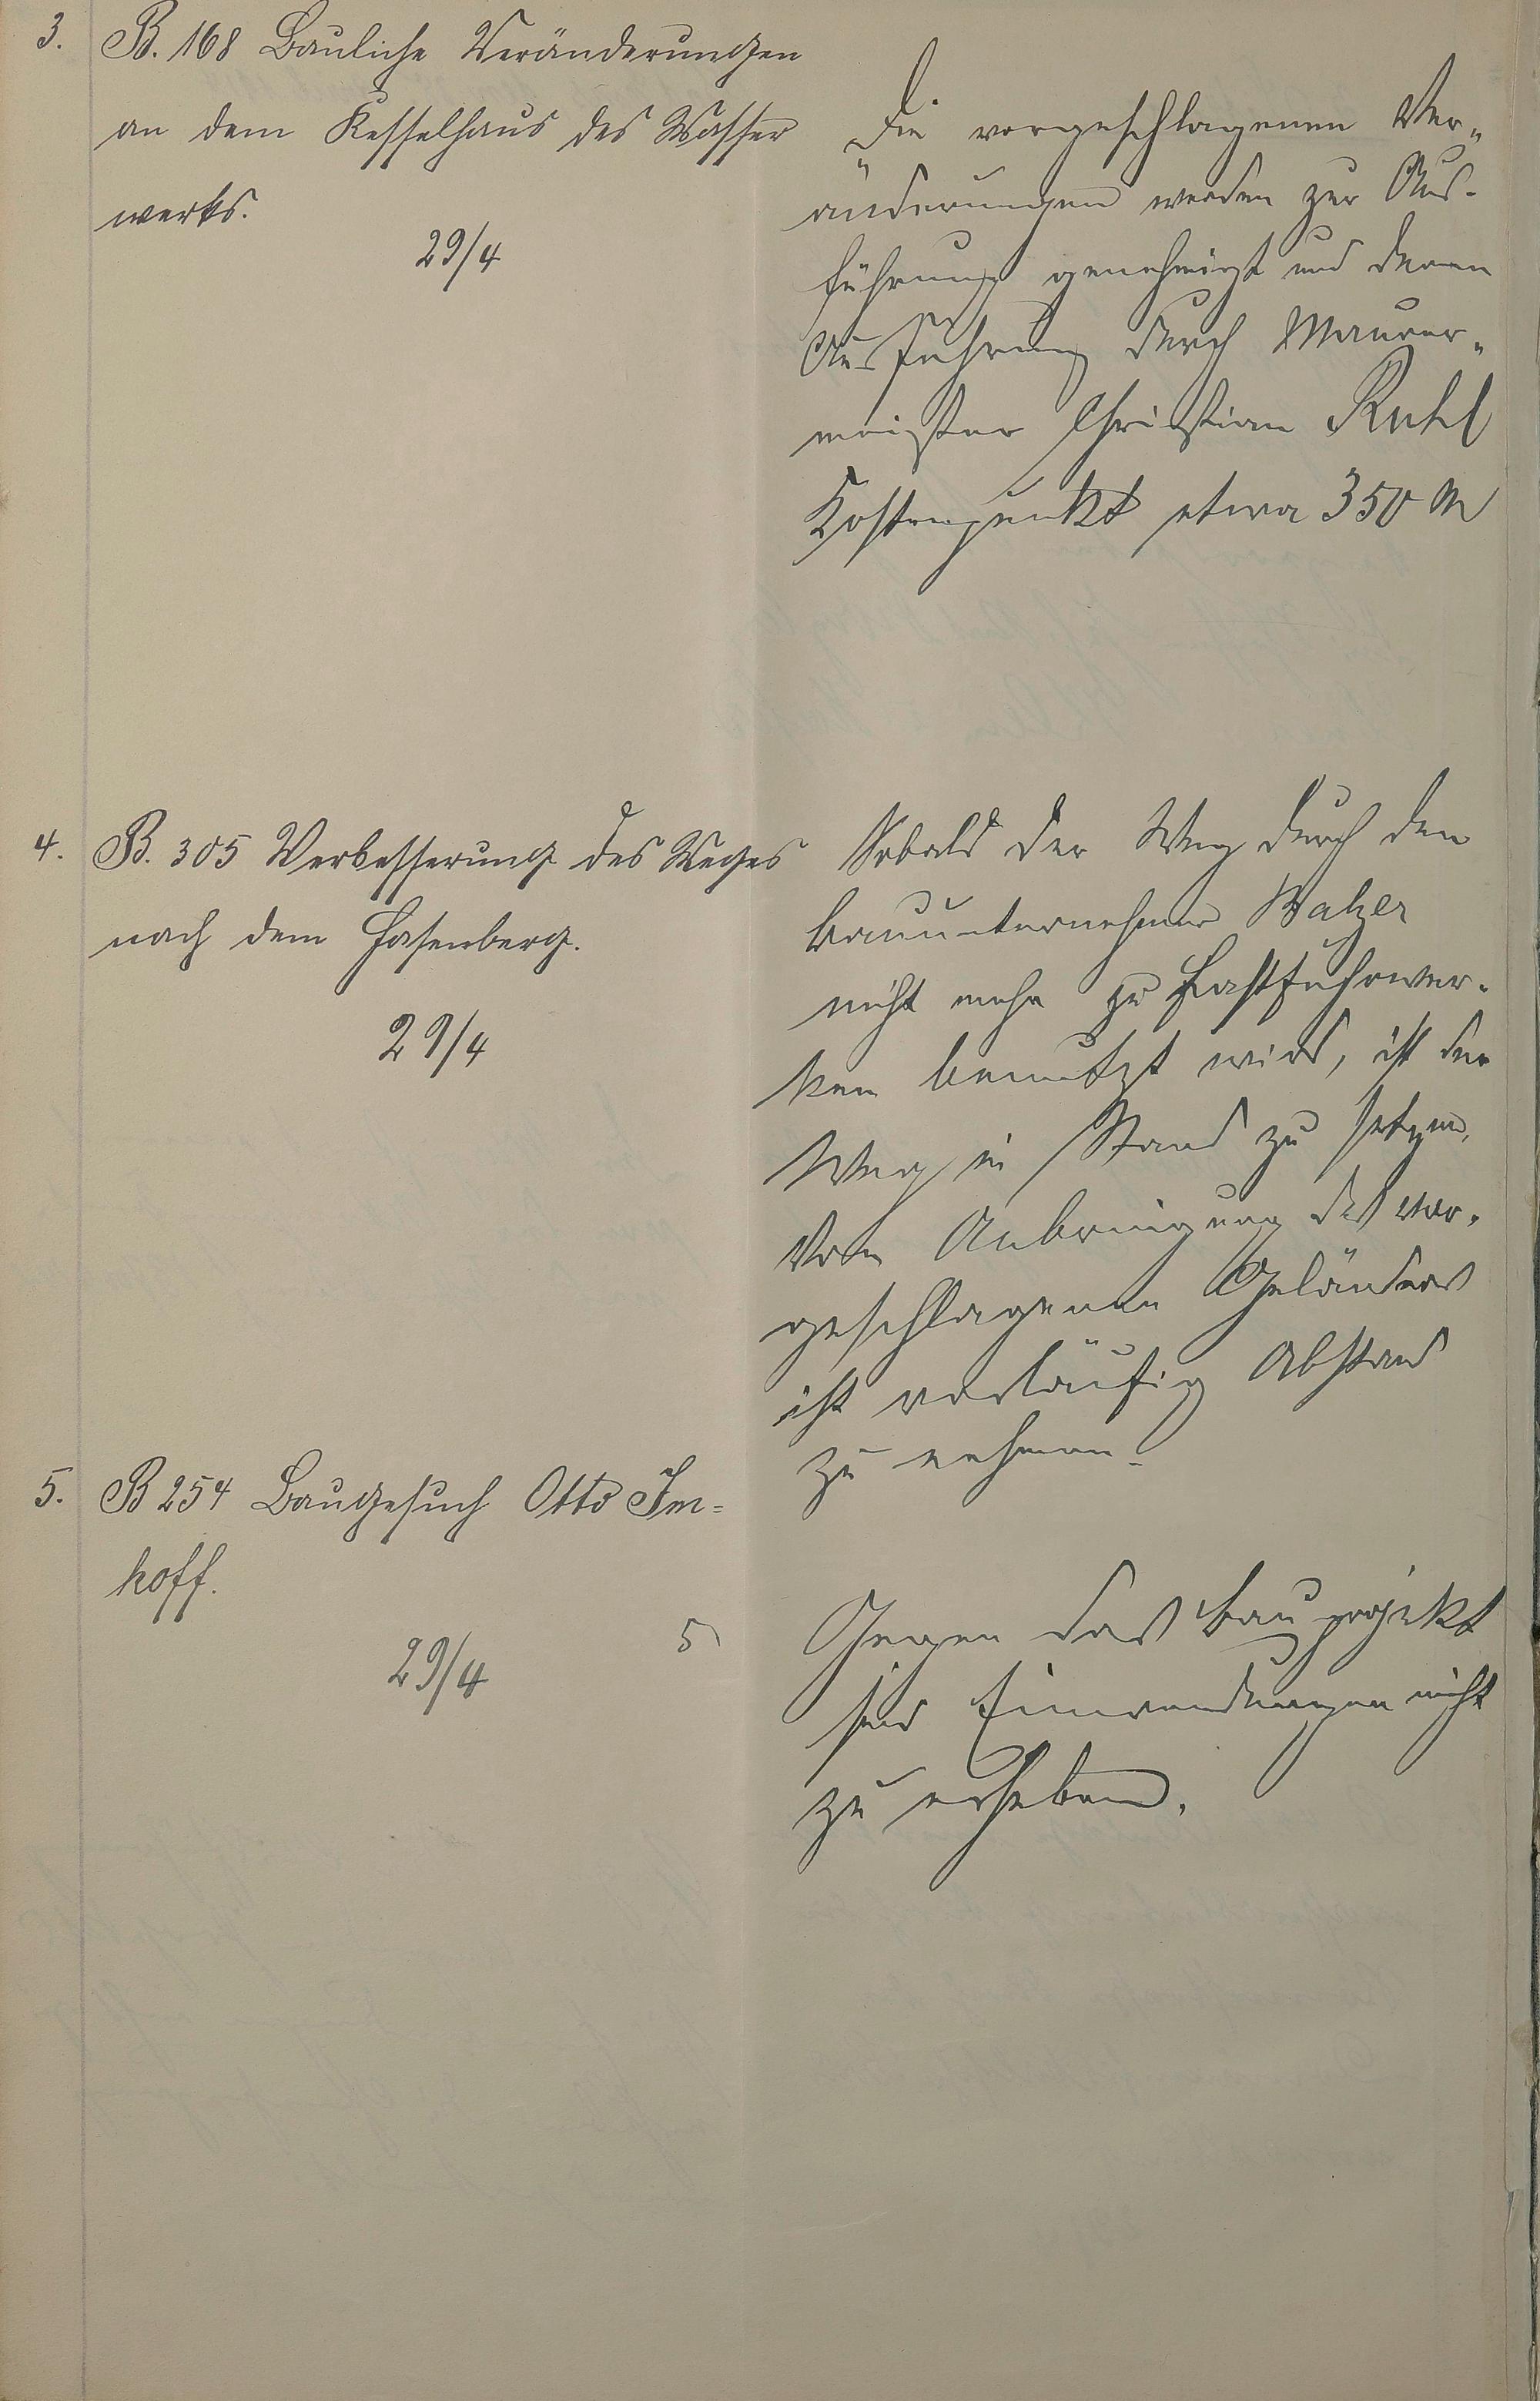 3. B. 168 Bauliche Veränderungen
an dem Kesselhaus des Wasser
werks.
29/4
Die vorgeschlagenen Ver-
änderungen werden zur Aus-
führung genehmigt und deren
Ausführung durch Maurer-
meister Christian Ruhl
Kostenpunkt etwa 350 M
4. B. 305 Verbesserung des Weges
nach dem Hasenberg.
29/4
Sobald der Weg durch den
Bauunternehmer Balzer
nicht mehr zu Lastfuhrwer-
ken benutzt wird, ist der
Weg in Stand zu setzen,
Von Anbringung des vor-
geschlagenen Geländers
ist vorläufig Abstand
zu nehmen.
5. B 254 Baugesuch Otto Im-
hoff.
29/4
5) Gegen das Bauprojekt
sind Einwendungen nicht
zu erheben.